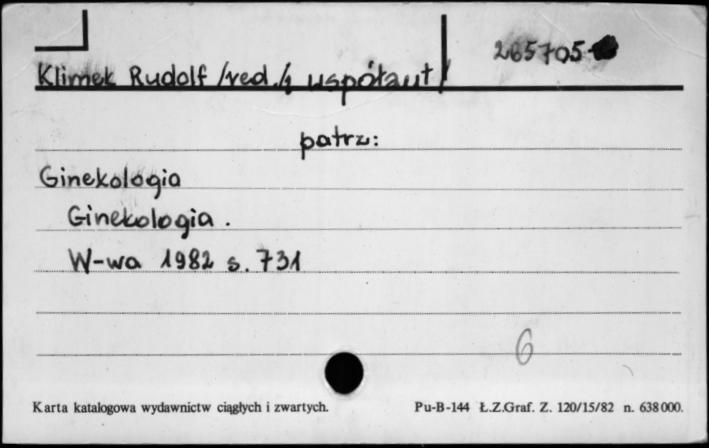 265705
Klimek Rudolf /red./i współaut/
patrz:
Ginekologia
Ginekologia.
W-wa 1982 s. 731
6
Karta katalogowa wydawnictw ciągłych i zwartych. Pu-B-144 Ł.Z.Graf. Z. 120/15/82 n. 638000.